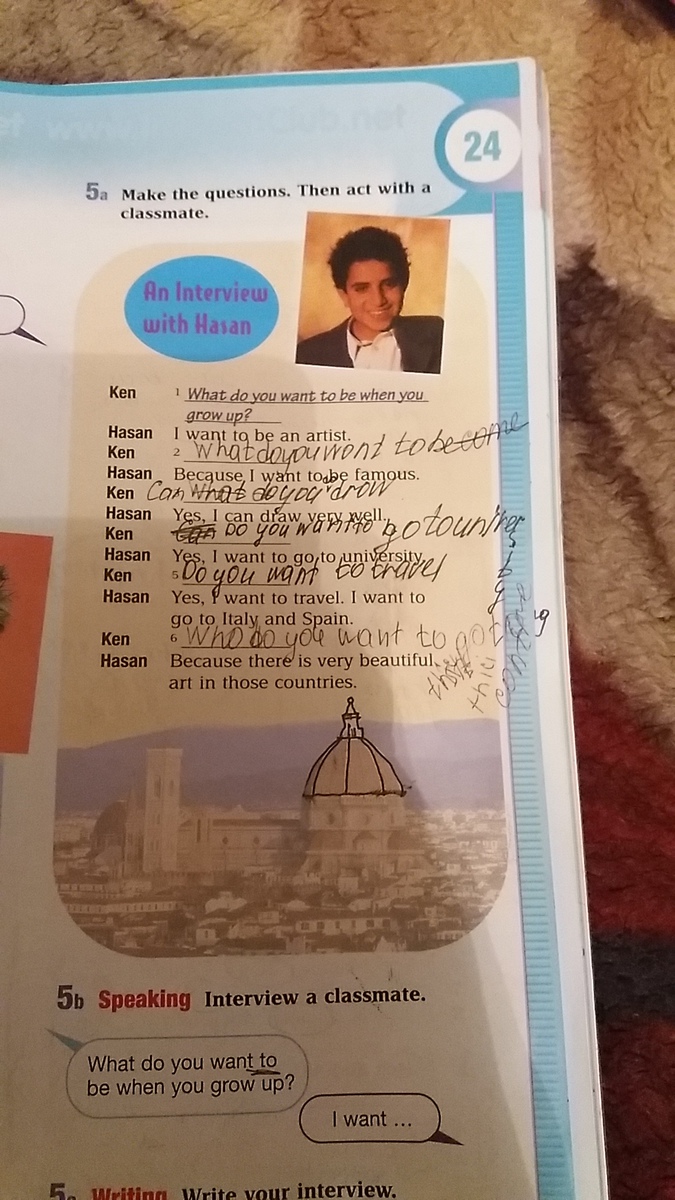 24
5a Make the questions. Then act with a
classmate.
An Interview
with Hasan
Ken 1 What do you want to be when you
grow up?
Hasan I want to be an artist.
Ken 2 What do you want to become
Hasan Because I want to be famous.
Ken Can What do you drow
Hasan Yes, I can draw very well.
Ken Can Do you want to go to univer
Hasan Yes, I want to go to university.
Ken 5 Do you want to travel
Hasan Yes, I want to travel. I want to
go to Italy and Spain.
Ken 6 Who do you want to go
Hasan Because there is very beautiful
art in those countries.
5b Speaking Interview a classmate.
What do you want to
be when you grow up?
I want ...
Writing Write your interview.